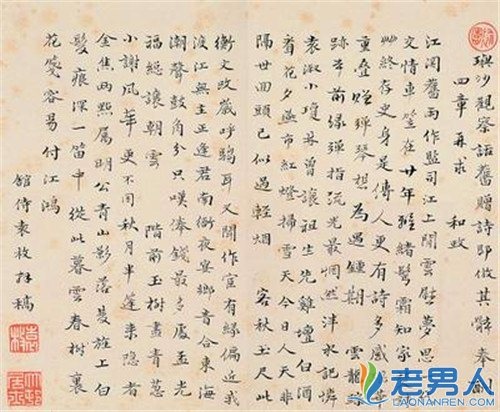 沙觀察話舊贈詩即倣其體奉
四章再求 和政
江闊舊雨作監司江上閒雲壓夢思
文情車笠在廿年離緒鬢霜知家
艸終存史身是傳人更有詩多感
重叠贈彈琴想為過鍾期 雲龍
跡半前緣彈指流光最惘然泮水記憐
袁淑小瓊林曾讓祖生先雞壇白酒
看花夕燕市紅燈掃雪天今日人天非
隔世回頭已似過輕烟 容秋玉尺此
衡文政歲呼耳又聞作宦有緣偏近我
渡江無主正逢君南衙夜宴鄉音合東海
潮聲鼓角分只嘆俸錢最多處孟光
福總讓朝雲 階前玉樹盡青葱
小謝風華更不同秋月半逢來隱者
金焦兩點屬明公青山影落旌上白
髮痕深一笛中從此暮雲春樹裏
花箋容易付江鴻
館侍袁枚拜稿
老男人
LAONANREN.COM